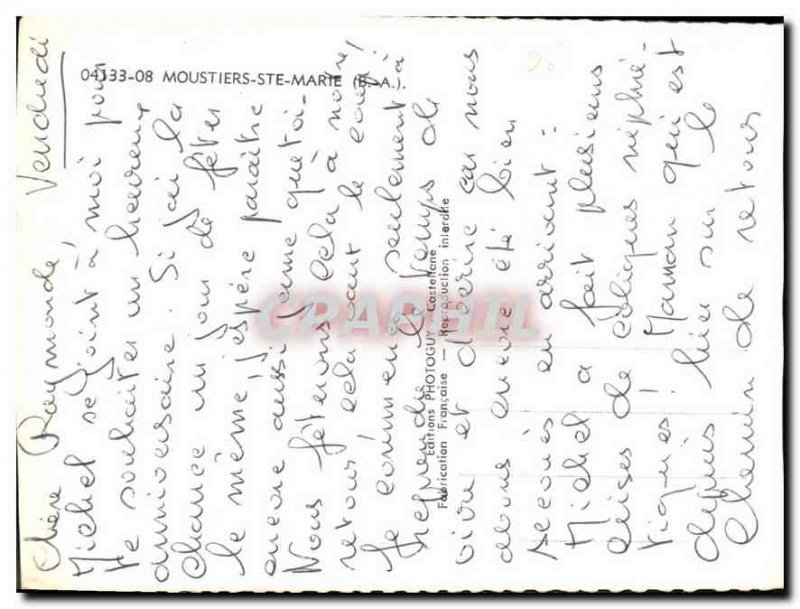 04133-08 MOUSTIERS-STE-MARIE (B.-A.).
Vendredi
Chère Raymonde,
Michel se joint à moi pour
te souhaiter un heureux
anniversaire. Si j'ai la
chance un jour de fêter
le même, j'espère paraître
encore aussi jeune que toi.
Nous fêterons cela à notre
retour, cela vaut le coup!
Je commence seulement à
reprendre le temps de
vivre et d'écrire car nous
avons encore été bien
secoués en arrivant :
Michel a fait plusieurs
crises de coliques néphré-
tiques! Maman qui est
depuis hier sur le
Chemin de retour
Editions PHOTOGUY — Castellane
Fabrication Française — Reproduction interdite
CPAPHIL